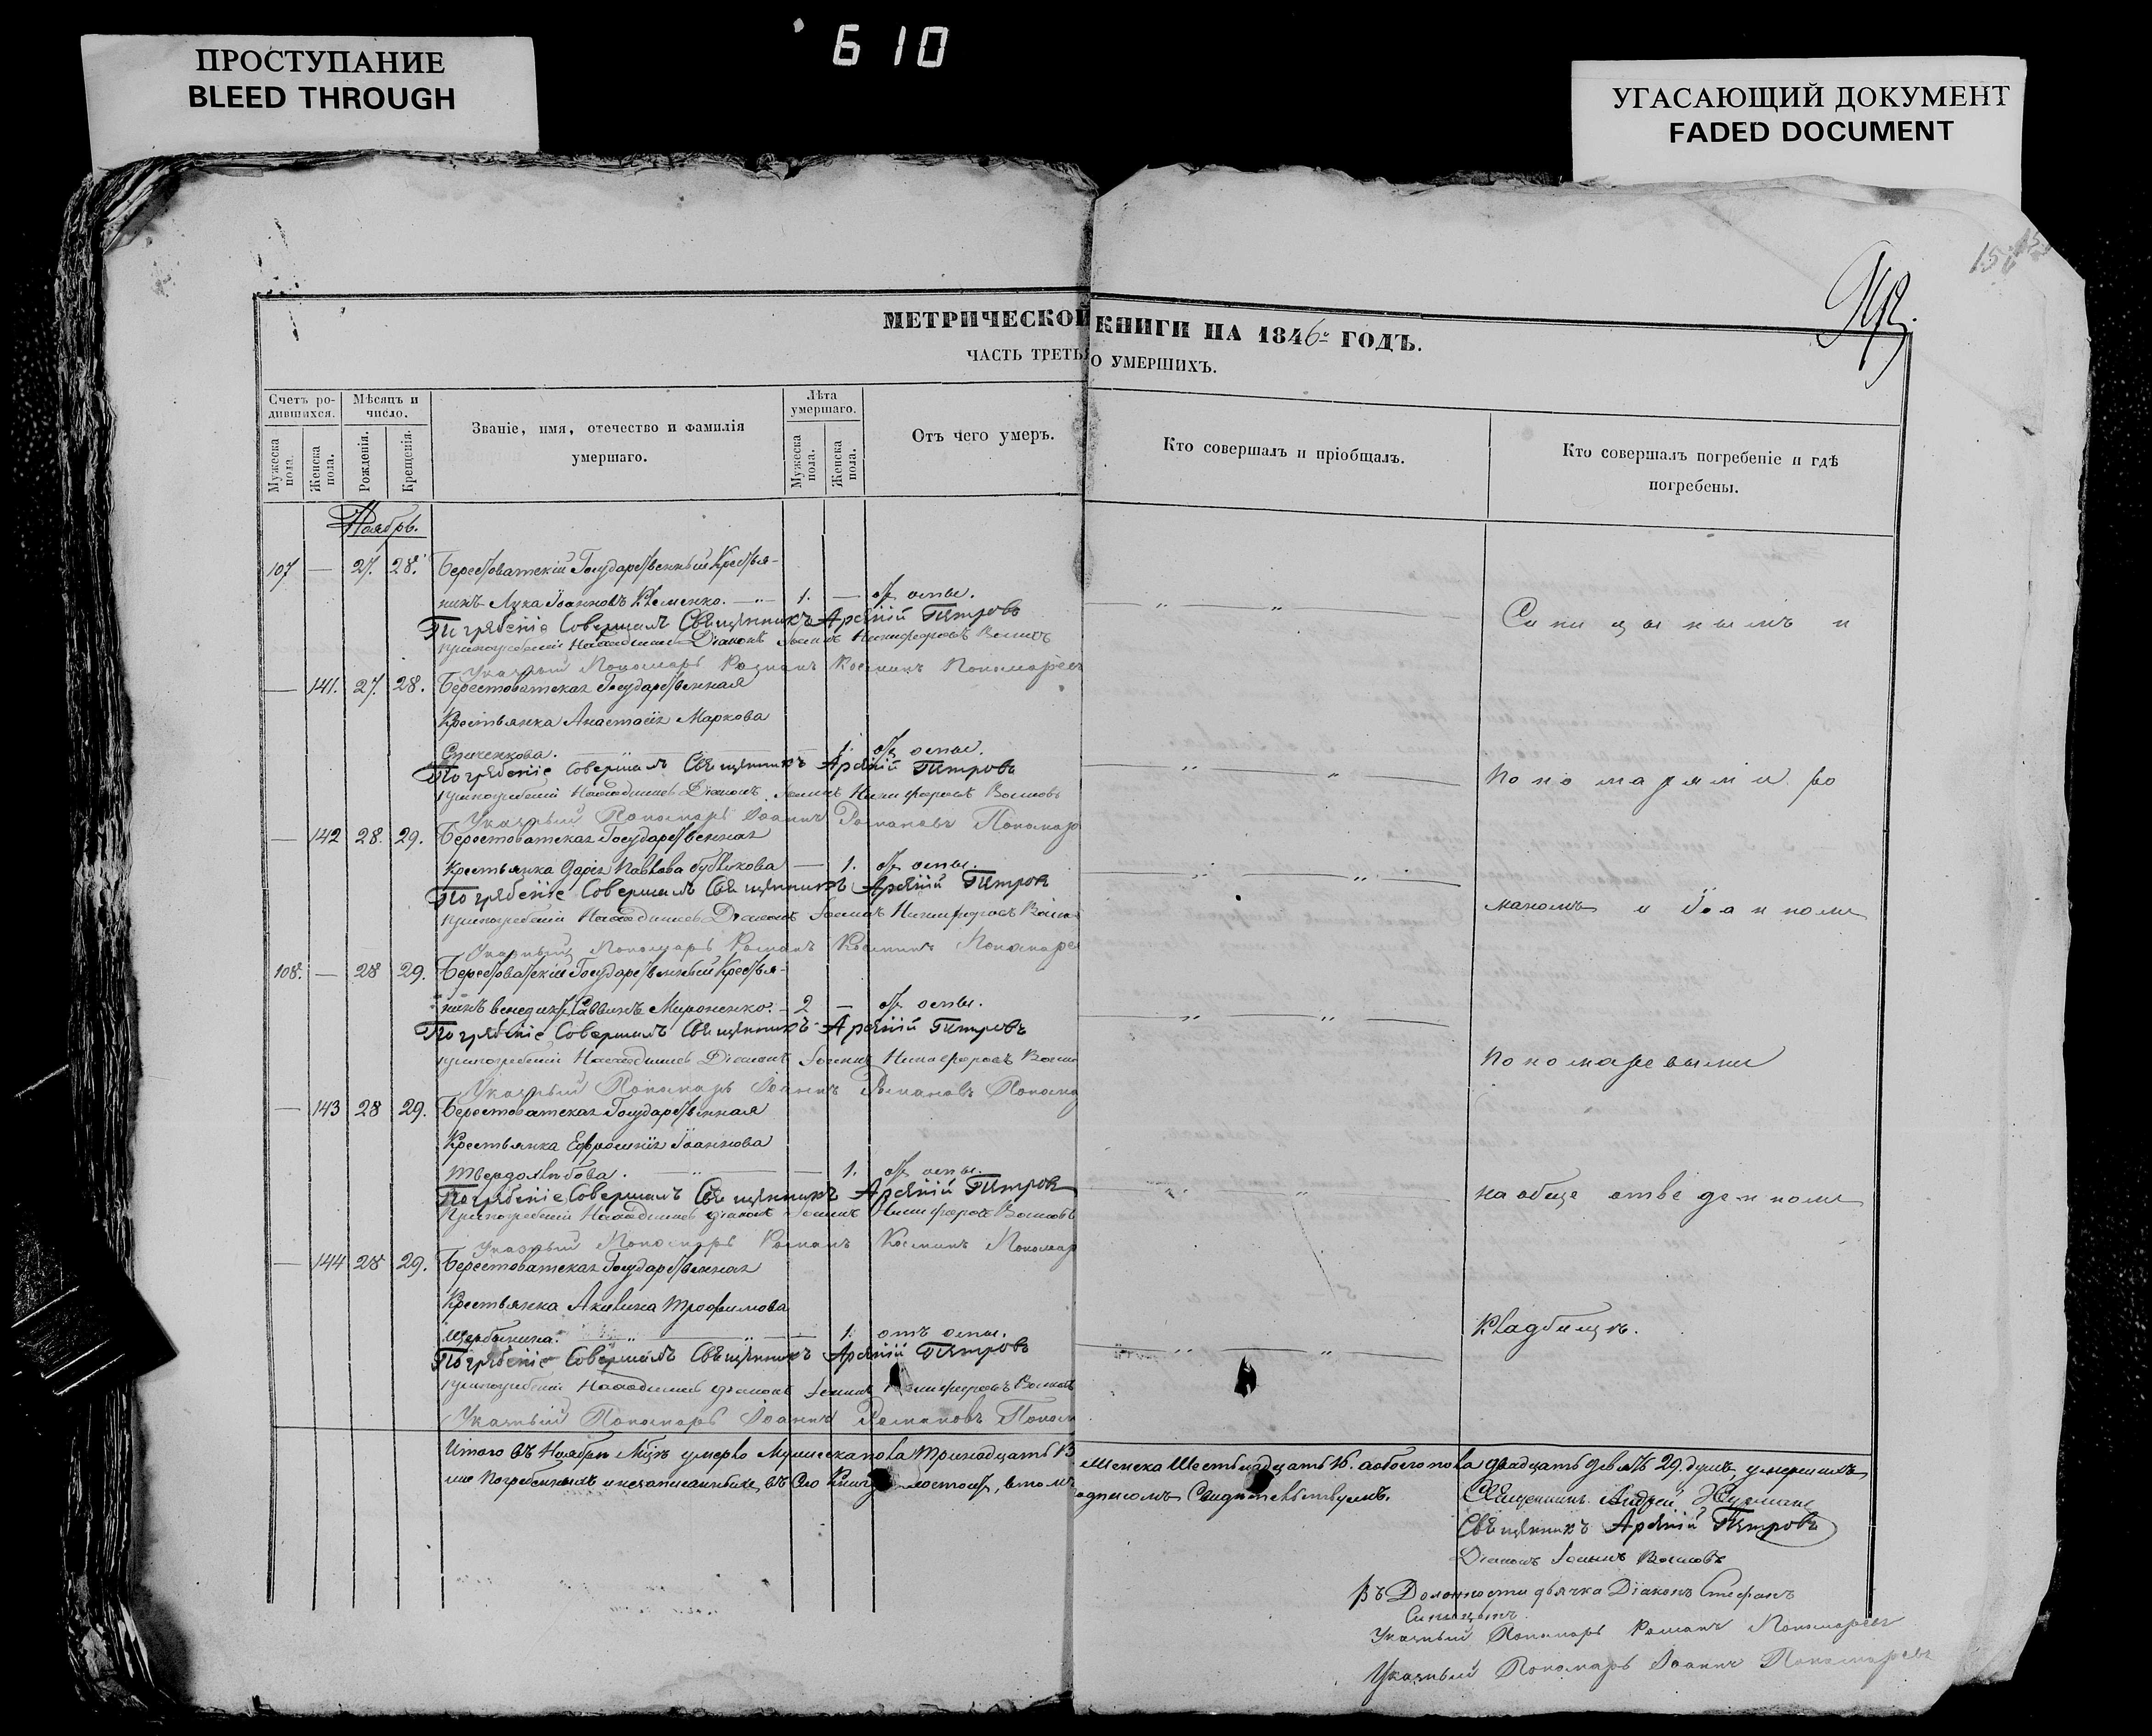 610
ПРОСТУПАНИЕ
BLEED THROUGH
УГАСАЮЩИЙ ДОКУМЕНТ
FADED DOCUMENT
МЕТРИЧЕСКОЙ КНИГИ НА 1846й ГОДЪ.
ЧАСТЬ ТРЕТЬЯ О УМЕРШИХЪ.
Счетъ ро-
дившихся.
Мѣсяцъ и
число.
Званіе, имя, отечество и фамилія
умершаго.
Лѣта
умершаго.
Отъ чего умеръ.
Кто совершалъ и пріобщалъ.
Кто совершалъ погребеніе и гдѣ
погребены.
Мужеска
пола.
Женска
пола.
Рожденія.
Крещенія.
Мужеска
пола.
Женска
пола.
Ноябрь.
107 — 27. 28. Берестоватскій Государственный Крестья-
нинъ Лука Іоанновъ Клеменко. — 1. — отъ оспы.
Погребеніе Совершалъ Священникъ Арсеній Петровъ
Припогребеніи Находились Діаконъ Іоаннъ Никифоровъ
Указный Пономарь Романъ Косминъ Пономаревъ
Синицынымъ и
— 141. 27. 28. Берестоватская Государственная
Крестьянка Анастасія Маркова
— 1. отъ оспы.
Погребеніе Совершалъ Священникъ Арсеній Петровъ
Припогребеніи Находились Діаконъ Іоаннъ Никифоровъ
Указный Пономарь Іоаннъ Романовъ Пономар
Пономарями Ро
— 142 28. 29. Берестоватская Государственная
Крестьянка Дарія Павлова Бубликова — 1. отъ оспы.
Погребеніе Совершалъ Священникъ Арсеній Петров
Припогребеніи Находились Діаконъ Іоаннъ Никифоровъ
Указный Пономарь Романъ Косминъ Пономарев
маномъ и Іоанномъ
108. — 28 29. Берестоватскій Государственный Крестья-
нинъ Венедиктъ Саввинъ Мироненко. — 2 — отъ оспы.
Погребеніе Совершалъ Священникъ Арсеній Петровъ
Припогребеніи Находились Діаконъ Іоаннъ Никифоровъ
Указный Пономарь Іоаннъ Романовъ Пономар
Пономаревыми
— 143 28 29. Берестоватская Государственная
Крестьянка Ефросинія Іоаннова
Твердохлебова. — 1. отъ оспы.
Погребеніе Совершалъ Священникъ Арсеній Петров
Припогребеніи Находились Діаконъ Іоаннъ Никифоровъ
Указный Пономарь Романъ Косминъ Пономар
на обще отведенномъ
— 144 28 29. Берестоватская Государственная
Крестьянка Акилина Трофимова
Щербинина. — 1. отъ оспы.
Погребеніе Совершалъ Священникъ Арсеній Петровъ
Припогребеніи Находились Діаконъ Іоаннъ Никифоровъ
Указный Пономарь Іоаннъ Романовъ Поном
Кладбищѣ.
Итого въ Ноябрѣ Мцѣ умерло Мужеска пола тринадцать 13 Женска Шестьнадцать 16. а обоего пола двадцать девять 29. душъ, умершихъ
же Погребенныхъ и незаписанныхъ въ Сію Книгу несостоитъ, въ томъ подписомъ Свидетельствуемъ.
Священникъ Андрей
Священникъ Арсеній Петровъ
Діаконъ Іоаннъ
Въ Должности дьячка Діаконъ Стефанъ
Синицынъ
Указный Пономарь Романъ Пономаревъ
Указный Пономарь Іоаннъ Пономаревъ